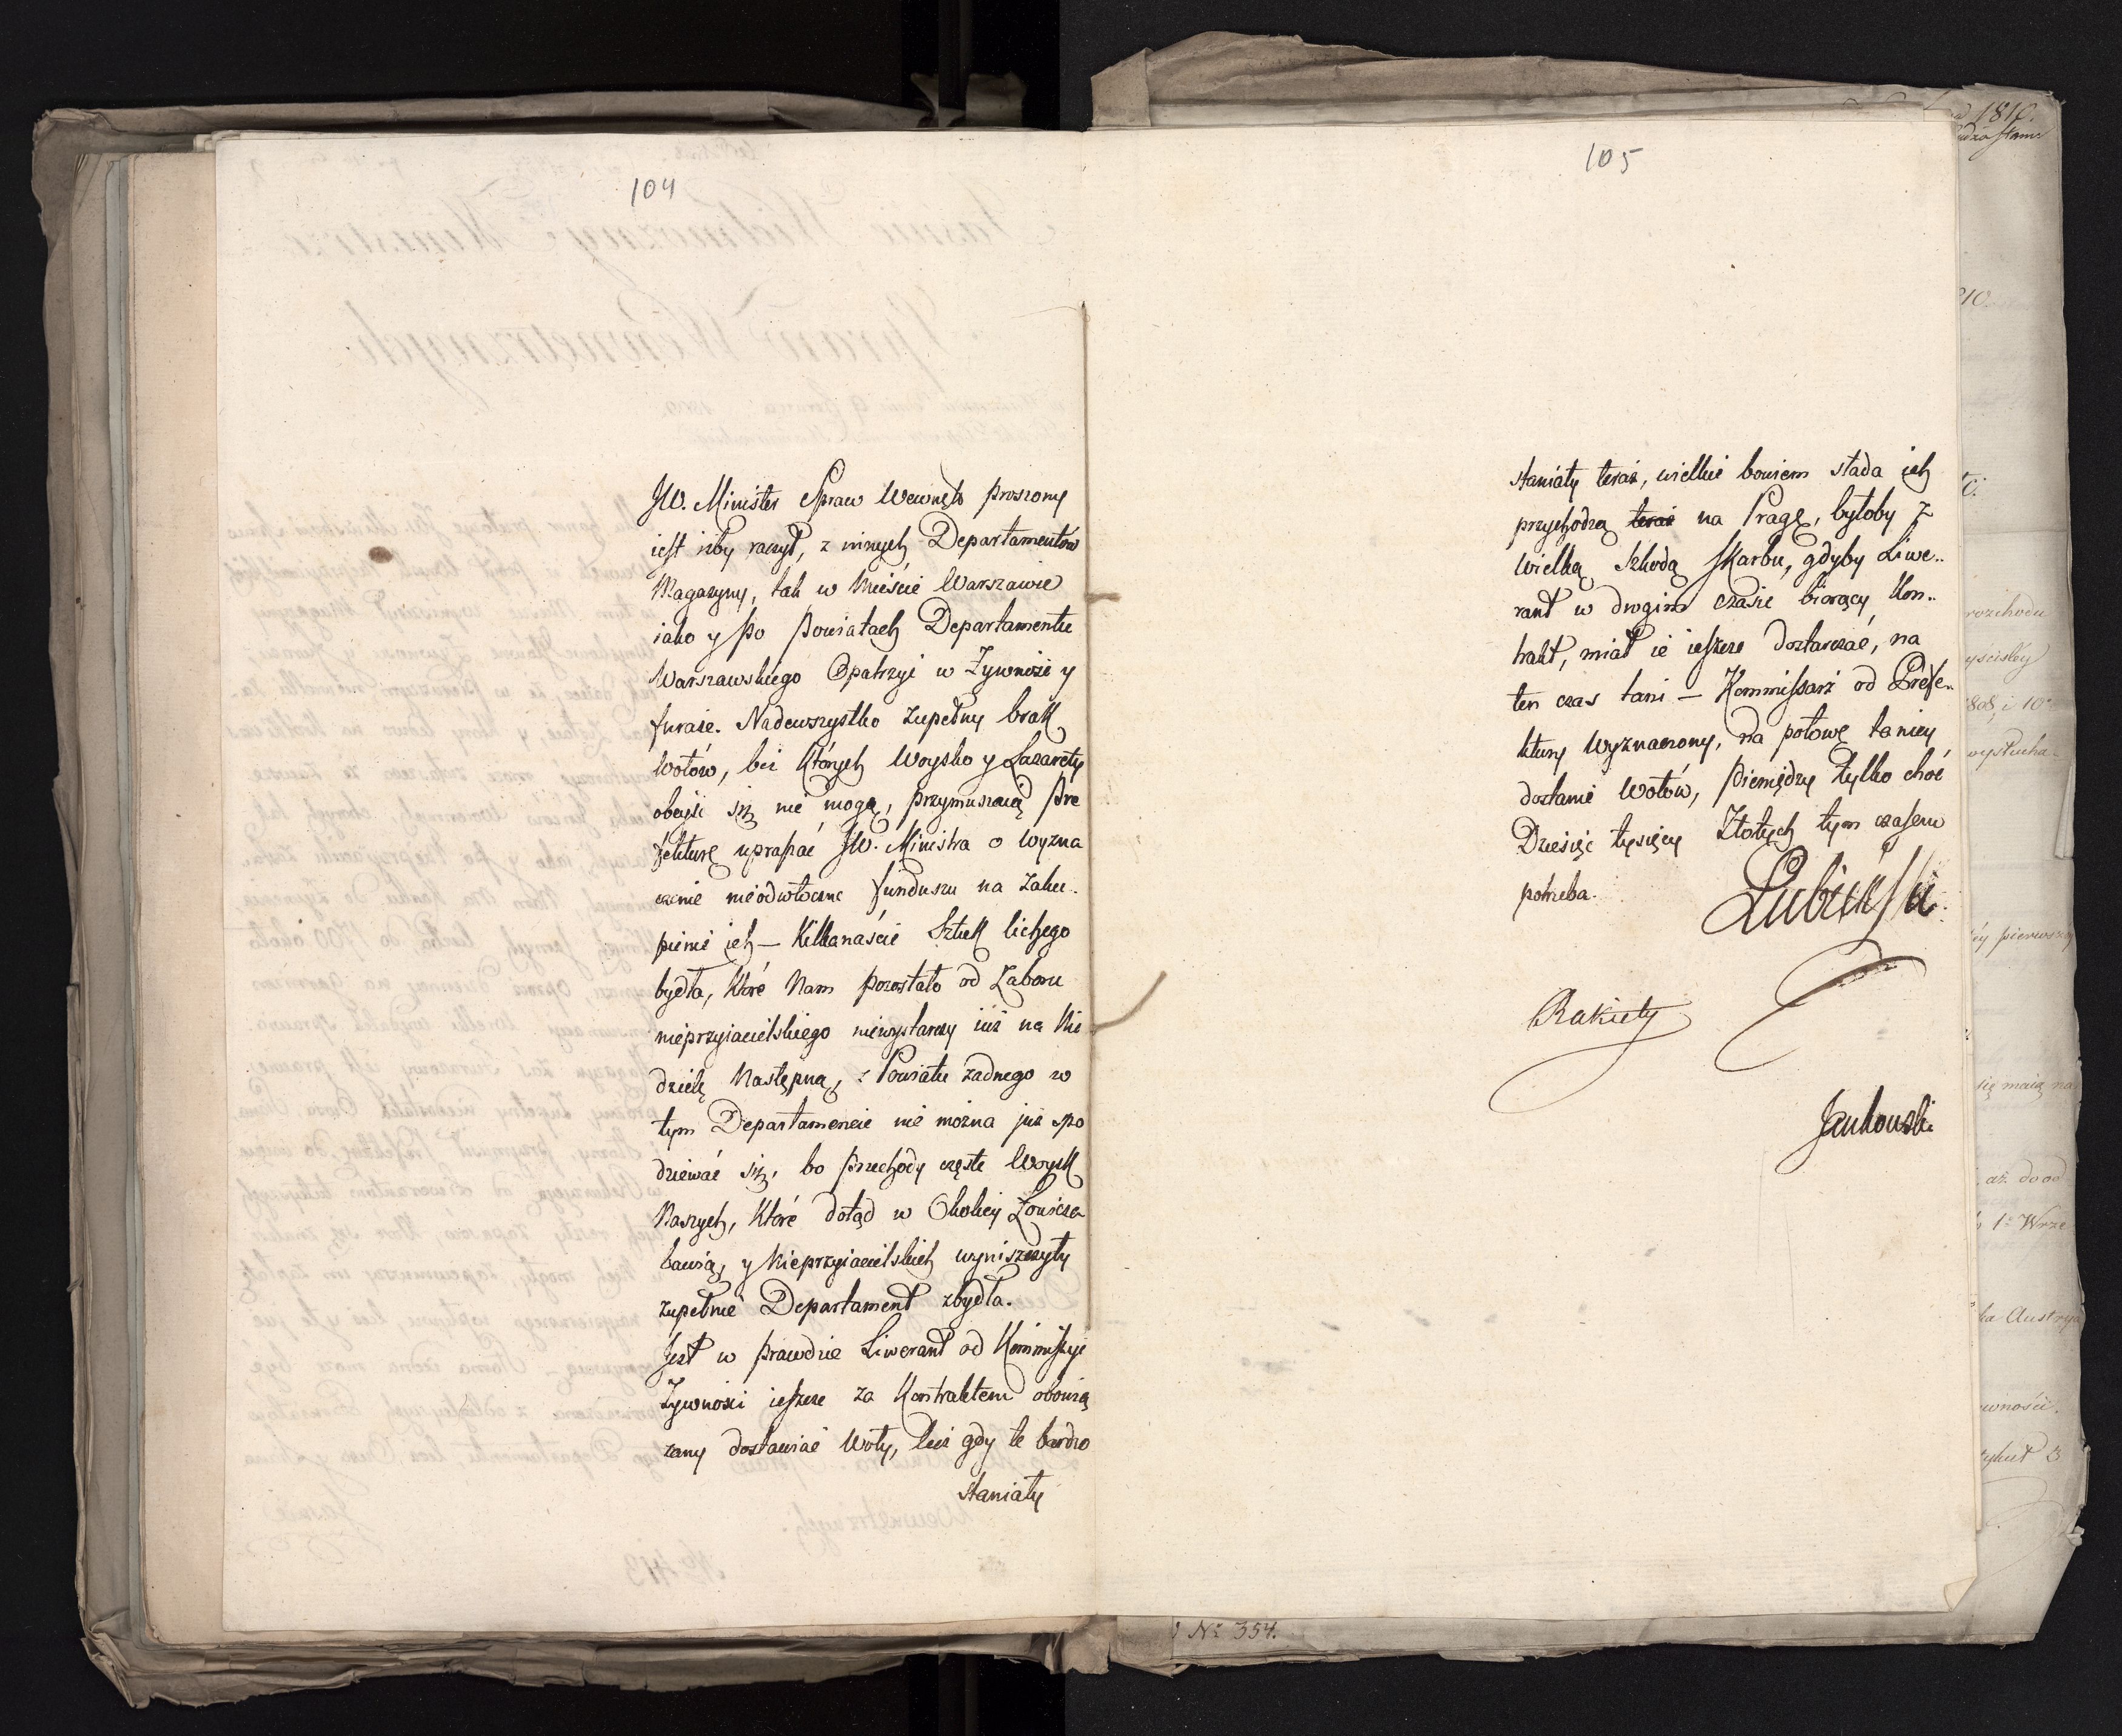 104
JW. Minister Spraw Wewnętr proszony
iest iżby raczył, z innych Departamentów
Magazyny, tak w Mieście Warszawie
iako y po Powiatach Departamentu
Warszawskiego Opatrzyć w Żywność y
furaże. Nadewszystko zupełny brak
Wołów, bez których Woysko y Lazarety
obejść się nie mogą, przymuszaią Pre
fekturę upraszać JW. Ministra o wyzna
czenie nieodwłoczne funduszu na Zaku-
pienie ich — Kilkanaście Sztuk lichego
bydła, które Nam pozostało od Zaboru
nieprzyiacielskiego niewystarczy iuż na Nie
dzielę Następną, z Powiatu żadnego w
tym Departamencie nie można już spo
dziewać się, bo przechody częste Woysk
Naszych, które dotąd w Okolicy Łowicza
bawią, y Nieprzyiacielskich wyniszczyły
zupełnie Departament zbydła.
Jest w prawdzie Liwerant od Kommissyi
Żywności ieszcze za Kontraktem obowią
zany dostawiać Woły, lecz gdy te bardzo
staniały
105
staniały teraz, wielkie bowiem stada ich
przychodzą teraz na Pragę, byłoby z
wielką Szkodą Skarbu, gdyby Liwe..
rant w drogim czasie biorący Kon..
trakt, miał ie ieszcze dostarczać, na
ten czas tani — Kommissarz od Prefe..
ktury Wyznaczony, na połowę taniey
dostanie Wołów, Pieniędzy tylko choć
Dziesięć tysięcy Złotych tym czasem
potrzeba.
Łubieński
Rakiety
Jankowski
1810.
810.
rozchodu
yścisłey
808, i 10
wysłucha-
éy pierwszey
się maią na
aż do od
1° Wrze
ka Austrya
wności.
tykuł 3
N° 354.
N° 419